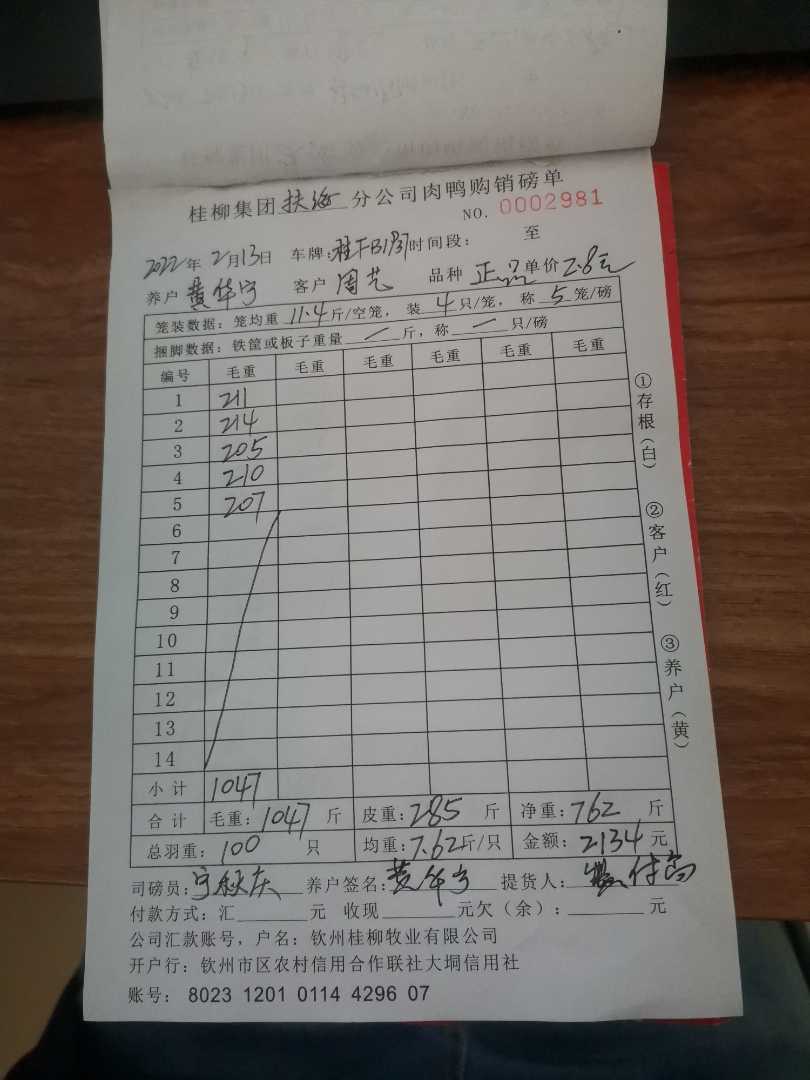 桂柳集团扶海分公司肉鸭购销磅单
NO. 0002981
2022年2月13日 车牌: 时间段: 至
养户 黄华宁 客户 周艺 品种 正品 单价 2.8元
笼装数据: 笼均重 11.4 斤/空笼, 装 4 只/笼, 称 5 笼/磅
捆脚数据: 铁筐或板子重量 / 斤, 称 / 只/磅
编号 毛重 毛重 毛重 毛重 毛重 毛重
1 211
2 214
3 205
4 210
5 207
6
7
8
9
10
11
12
13
14
小计 1047
合计 毛重: 1047 斤 皮重: 285 斤 净重: 762 斤
总羽重: 100 只 均重: 7.62斤/只 金额: 2134 元
司磅员: 宁秋庆 养户签名: 黄华宁 提货人:
付款方式: 汇 元 收现 元欠(余): 元
公司汇款账号, 户名: 钦州桂柳牧业有限公司
开户行: 钦州市区农村信用合作联社大垌信用社
账号: 8023 1201 0114 4296 07
①存根(白)
②客户(红)
③养户(黄)